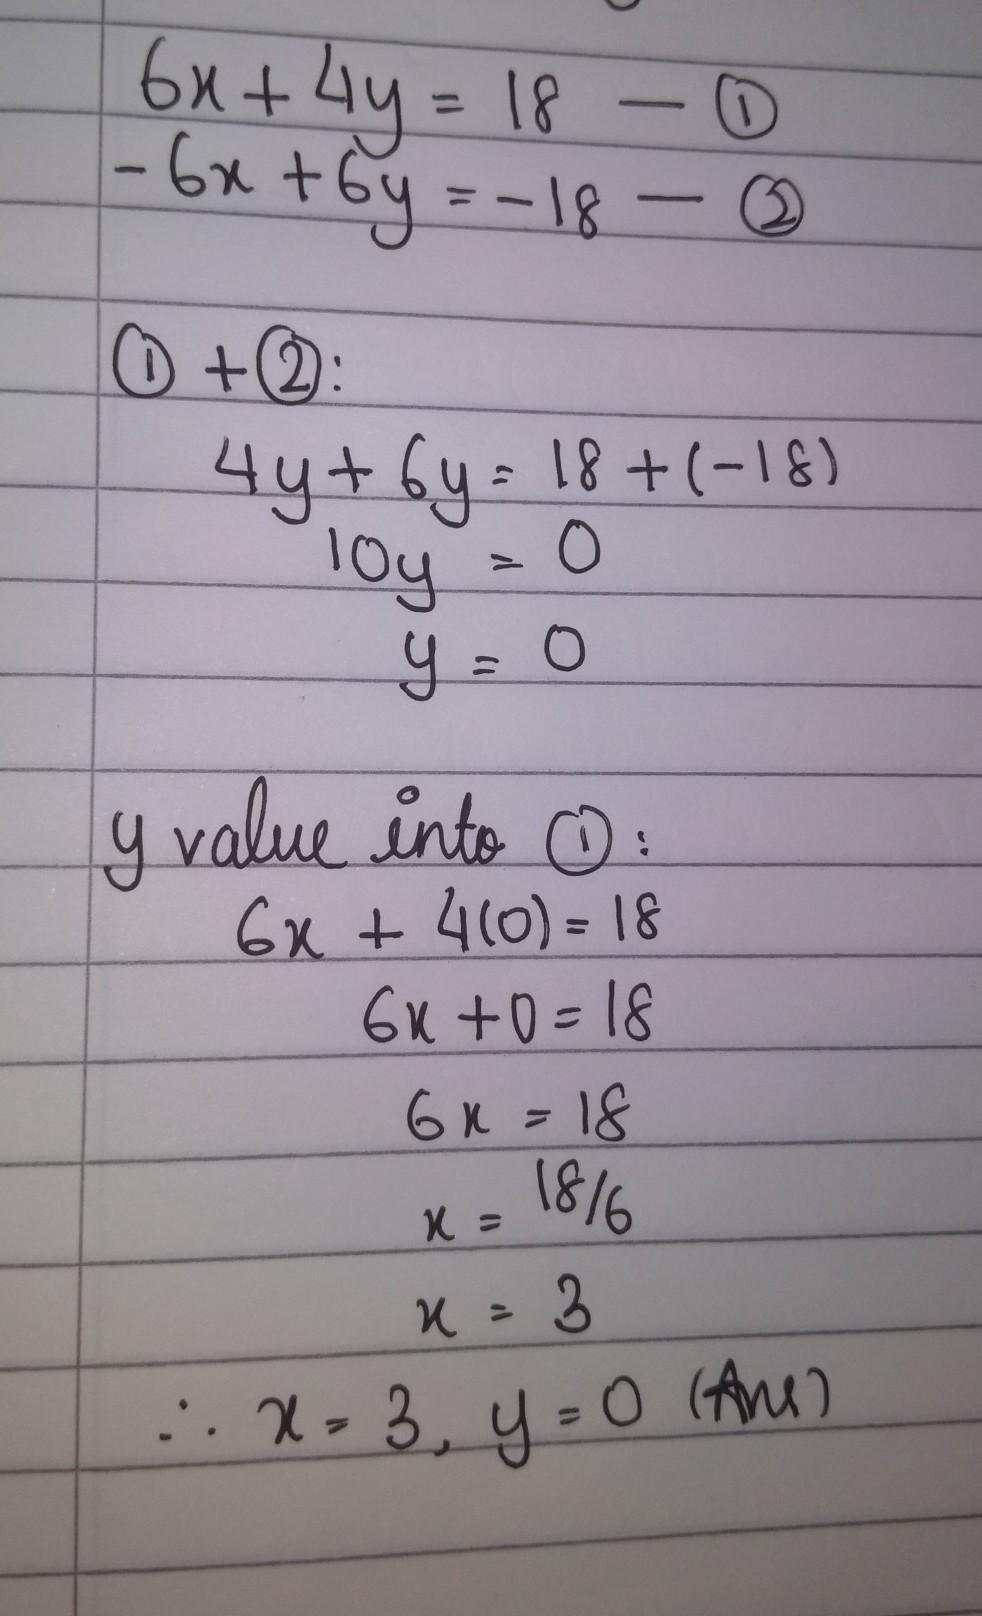 6x + 4y = 18 — ①
-6x + 6y = -18 — ②
① + ②:
4y + 6y = 18 + (-18)
10y = 0
y = 0
y value into ①:
6x + 4(0) = 18
6x + 0 = 18
6x = 18
x = 18/6
x = 3
∴ x = 3, y = 0 (Ans)